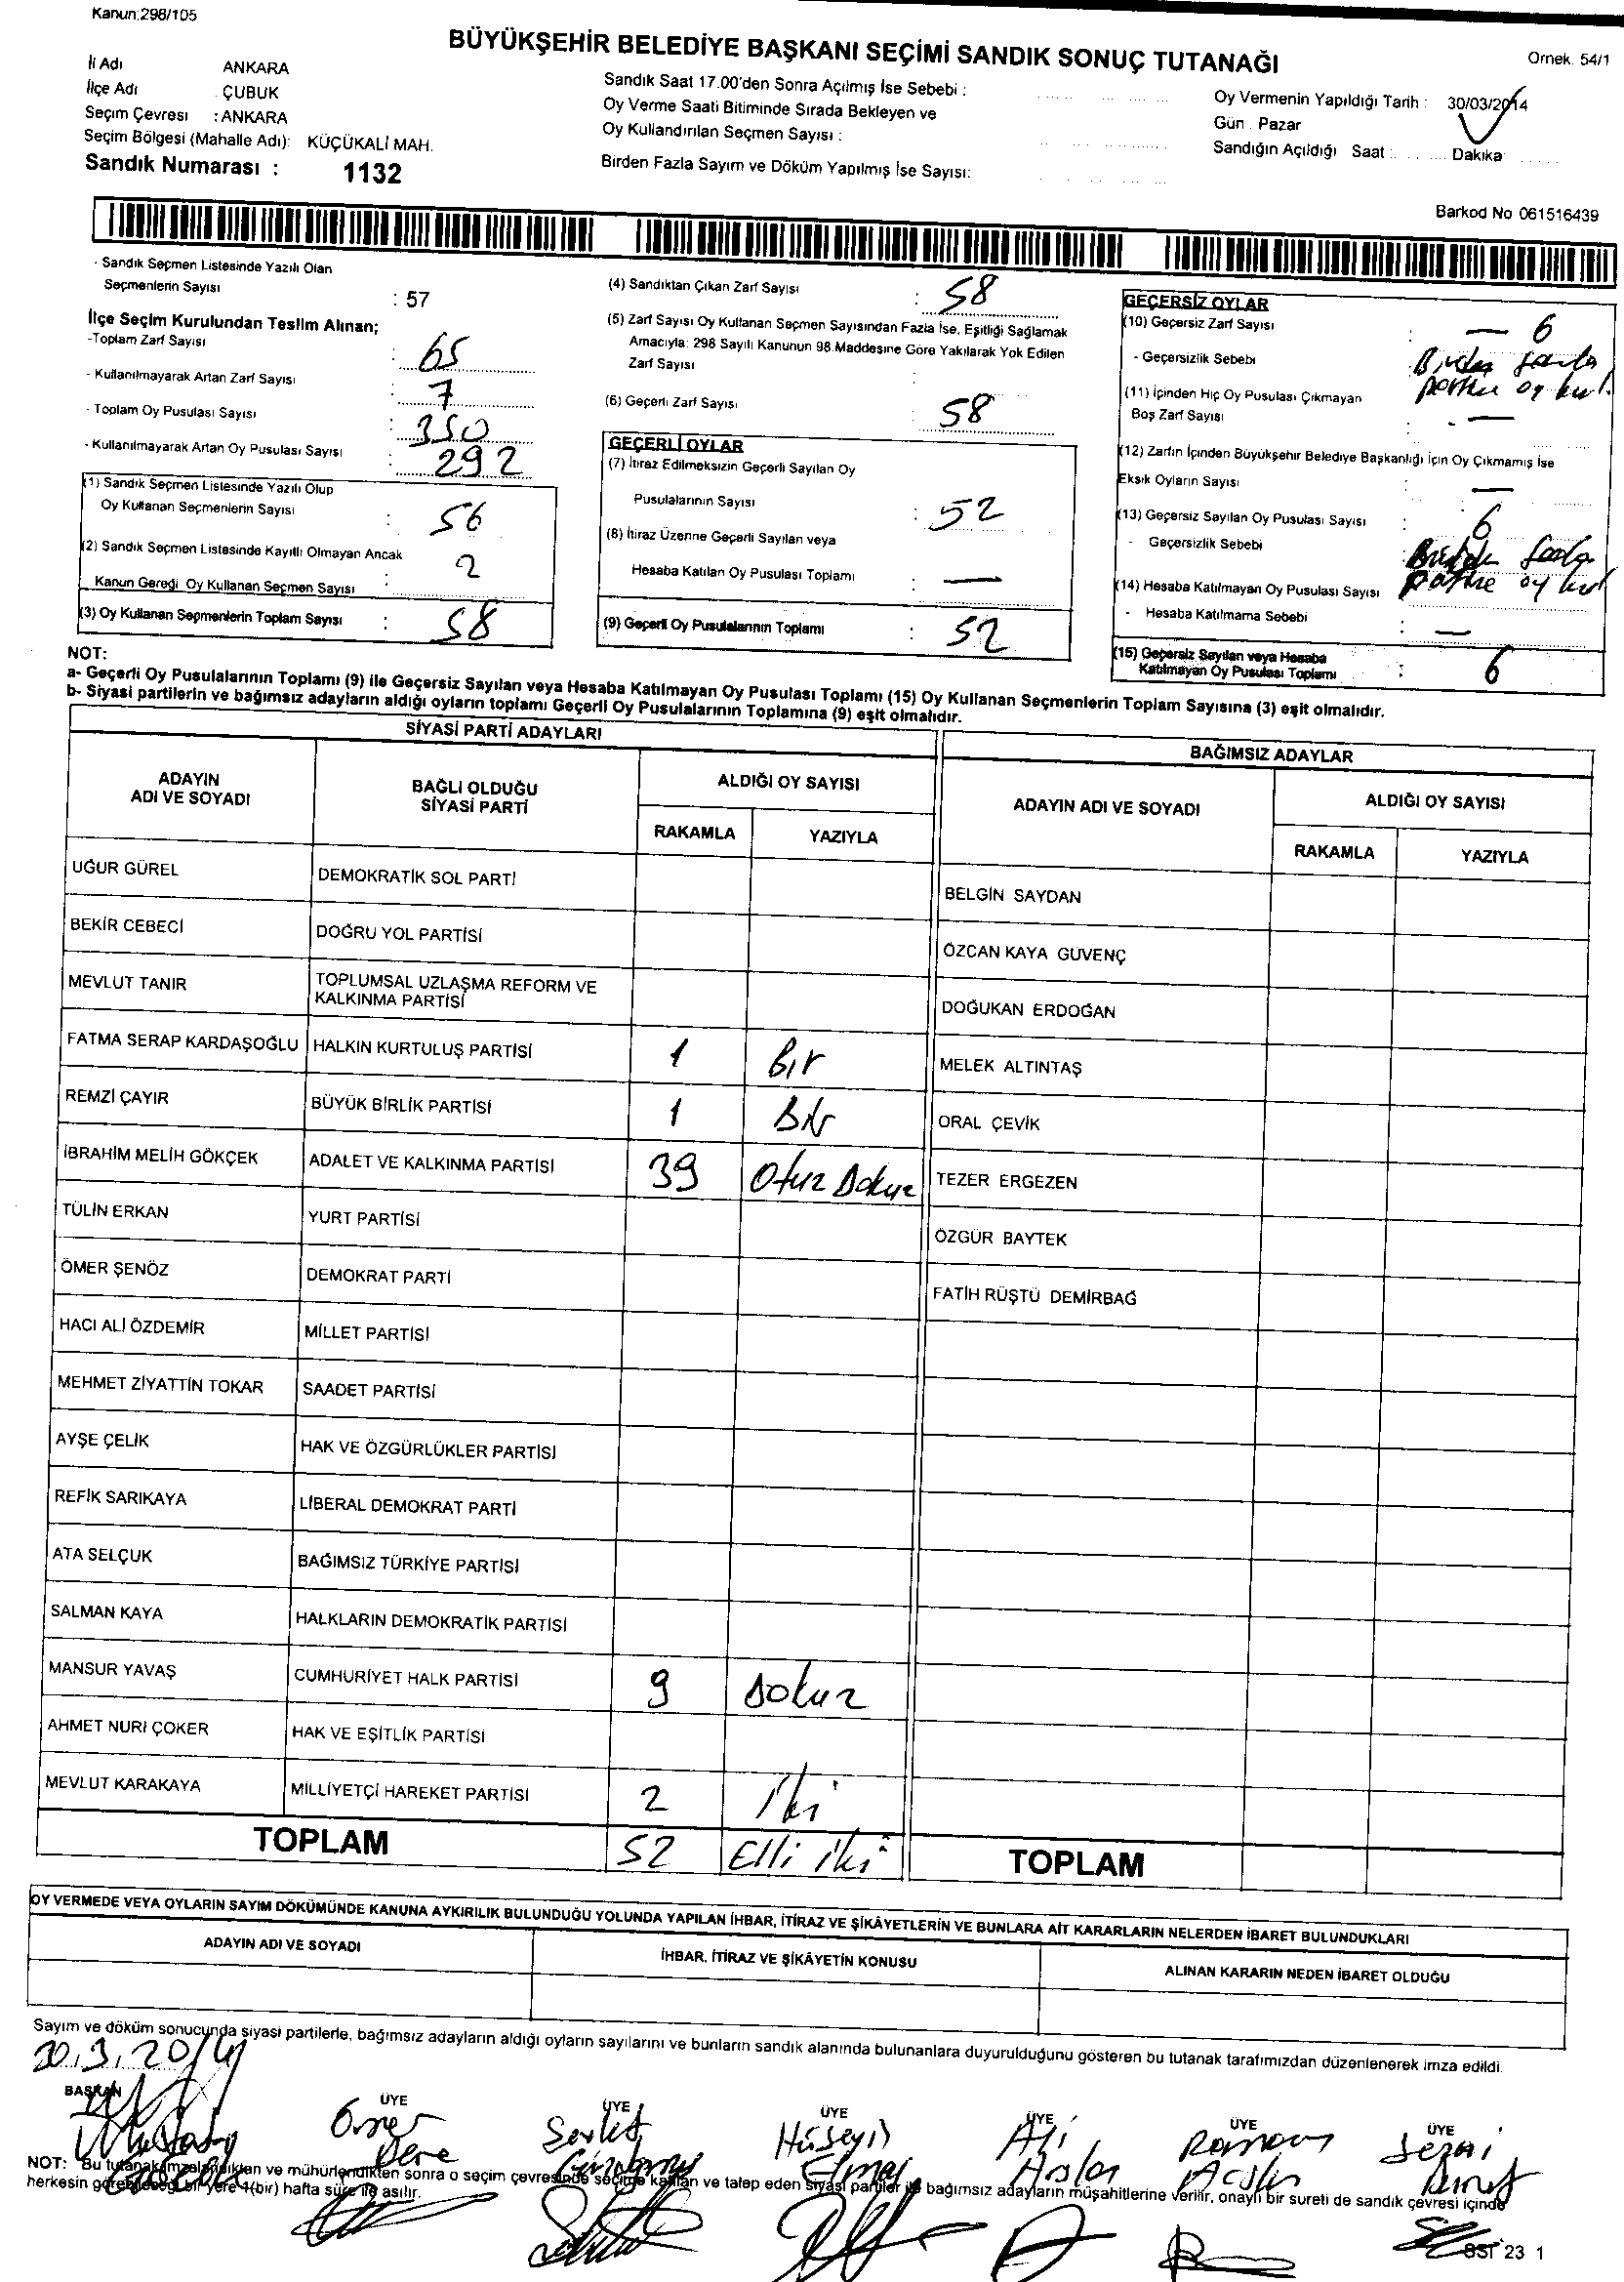 Kanun:298/105
BÜYÜKŞEHİR BELEDİYE BAŞKANI SEÇİMİ SANDIK SONUÇ TUTANAĞI
Örnek. 54/1
İl Adı ANKARA
İlçe Adı . ÇUBUK
Seçim Çevresi : ANKARA
Seçim Bölgesi (Mahalle Adı): KÜÇÜKALİ MAH.
Sandık Numarası : 1132
Sandık Saat 17.00'den Sonra Açılmış İse Sebebi :
Oy Verme Saati Bitiminde Sırada Bekleyen ve
Oy Kullandırılan Seçmen Sayısı :
Birden Fazla Sayım ve Döküm Yapılmış İse Sayısı:
Oy Vermenin Yapıldığı Tarih : 30/03/2014
Gün . Pazar
Sandığın Açıldığı Saat : Dakika
Barkod No 061516439
- Sandık Seçmen Listesinde Yazılı Olan
Seçmenlerin Sayısı : 57
İlçe Seçim Kurulundan Teslim Alınan;
-Toplam Zarf Sayısı : 65
- Kullanılmayarak Artan Zarf Sayısı : 7
- Toplam Oy Pusulası Sayısı : 350
- Kullanılmayarak Artan Oy Pusulası Sayısı : 292
(1) Sandık Seçmen Listesinde Yazılı Olup
Oy Kullanan Seçmenlerin Sayısı : 56
(2) Sandık Seçmen Listesinde Kayıtlı Olmayan Ancak
Kanun Gereği Oy Kullanan Seçmen Sayısı : 2
(3) Oy Kullanan Seçmenlerin Toplam Sayısı : 58
(4) Sandıktan Çıkan Zarf Sayısı : 58
(5) Zarf Sayısı Oy Kullanan Seçmen Sayısından Fazla İse, Eşitliği Sağlamak
Amacıyla: 298 Sayılı Kanunun 98.Maddesine Göre Yakılarak Yok Edilen
Zarf Sayısı :
(6) Geçerli Zarf Sayısı : 58
GEÇERLİ OYLAR
(7) İtiraz Edilmeksizin Geçerli Sayılan Oy
Pusulalarının Sayısı : 52
(8) İtiraz Üzerine Geçerli Sayılan veya
Hesaba Katılan Oy Pusulası Toplamı : —
(9) Geçerli Oy Pusulalarının Toplamı : 52
GEÇERSİZ OYLAR
(10) Geçersiz Zarf Sayısı : — 6
- Geçersizlik Sebebi Birden fazla
partiye oy kul.
(11) İçinden Hiç Oy Pusulası Çıkmayan
Boş Zarf Sayısı : —
(12) Zarfın İçinden Büyükşehir Belediye Başkanlığı İçin Oy Çıkmamış İse
Eksik Oyların Sayısı : —
(13) Geçersiz Sayılan Oy Pusulası Sayısı : 6
- Geçersizlik Sebebi : Birden fazla
partiye oy kul
(14) Hesaba Katılmayan Oy Pusulası Sayısı
- Hesaba Katılmama Sebebi : —
(15) Geçersiz Sayılan veya Hesaba
Katılmayan Oy Pusulası Toplamı : 6
NOT:
a- Geçerli Oy Pusulalarının Toplamı (9) ile Geçersiz Sayılan veya Hesaba Katılmayan Oy Pusulası Toplamı (15) Oy Kullanan Seçmenlerin Toplam Sayısına (3) eşit olmalıdır.
b- Siyasi partilerin ve bağımsız adayların aldığı oyların toplamı Geçerli Oy Pusulalarının Toplamına (9) eşit olmalıdır.
SİYASİ PARTİ ADAYLARI
ADAYIN ADI VE SOYADI
BAĞLI OLDUĞU SİYASİ PARTİ
ALDIĞI OY SAYISI
RAKAMLA YAZIYLA
UĞUR GÜREL DEMOKRATİK SOL PARTİ
BEKİR CEBECİ DOĞRU YOL PARTİSİ
MEVLUT TANIR TOPLUMSAL UZLAŞMA REFORM VE KALKINMA PARTİSİ
FATMA SERAP KARDAŞOĞLU HALKIN KURTULUŞ PARTİSİ 1 Bir
REMZİ ÇAYIR BÜYÜK BİRLİK PARTİSİ 1 Bir
İBRAHİM MELİH GÖKÇEK ADALET VE KALKINMA PARTİSİ 39 Otuz Dokuz
TÜLİN ERKAN YURT PARTİSİ
ÖMER ŞENÖZ DEMOKRAT PARTİ
HACI ALİ ÖZDEMİR MİLLET PARTİSİ
MEHMET ZİYATTİN TOKAR SAADET PARTİSİ
AYŞE ÇELİK HAK VE ÖZGÜRLÜKLER PARTİSİ
REFİK SARIKAYA LİBERAL DEMOKRAT PARTİ
ATA SELÇUK BAĞIMSIZ TÜRKİYE PARTİSİ
SALMAN KAYA HALKLARIN DEMOKRATİK PARTİSİ
MANSUR YAVAŞ CUMHURİYET HALK PARTİSİ 9 Dokuz
AHMET NURİ ÇOKER HAK VE EŞİTLİK PARTİSİ
MEVLUT KARAKAYA MİLLİYETÇİ HAREKET PARTİSİ 2 İki
TOPLAM 52 Elli iki
BAĞIMSIZ ADAYLAR
ADAYIN ADI VE SOYADI
ALDIĞI OY SAYISI
RAKAMLA YAZIYLA
BELGİN SAYDAN
ÖZCAN KAYA GÜVENÇ
DOĞUKAN ERDOĞAN
MELEK ALTINTAŞ
ORAL ÇEVİK
TEZER ERGEZEN
ÖZGÜR BAYTEK
FATİH RÜŞTÜ DEMİRBAĞ
TOPLAM
OY VERMEDE VEYA OYLARIN SAYIM DÖKÜMÜNDE KANUNA AYKIRILIK BULUNDUĞU YOLUNDA YAPILAN İHBAR, İTİRAZ VE ŞİKÂYETLERİN VE BUNLARA AİT KARARLARIN NELERDEN İBARET BULUNDUKLARI
ADAYIN ADI VE SOYADI
İHBAR, İTİRAZ VE ŞİKÂYETİN KONUSU
ALINAN KARARIN NEDEN İBARET OLDUĞU
Sayım ve döküm sonucunda siyasi partilerle, bağımsız adayların aldığı oyların sayılarını ve bunların sandık alanında bulunanlara duyurulduğunu gösteren bu tutanak tarafımızdan düzenlenerek imza edildi.
30.3.2014
BAŞKAN ÜYE ÜYE ÜYE ÜYE ÜYE ÜYE
Ömer Hüseyin Ali Ramazan Sezai
Dere Arslan
NOT: Bu tutanak imzalandıktan ve mühürlendikten sonra o seçim çevresinde seçime katılan ve talep eden siyasi partiler ile bağımsız adayların müşahitlerine verilir, onaylı bir sureti de sandık çevresi içinde
herkesin görebileceği bir yere 1(bir) hafta süre ile asılır.
SST 23 1